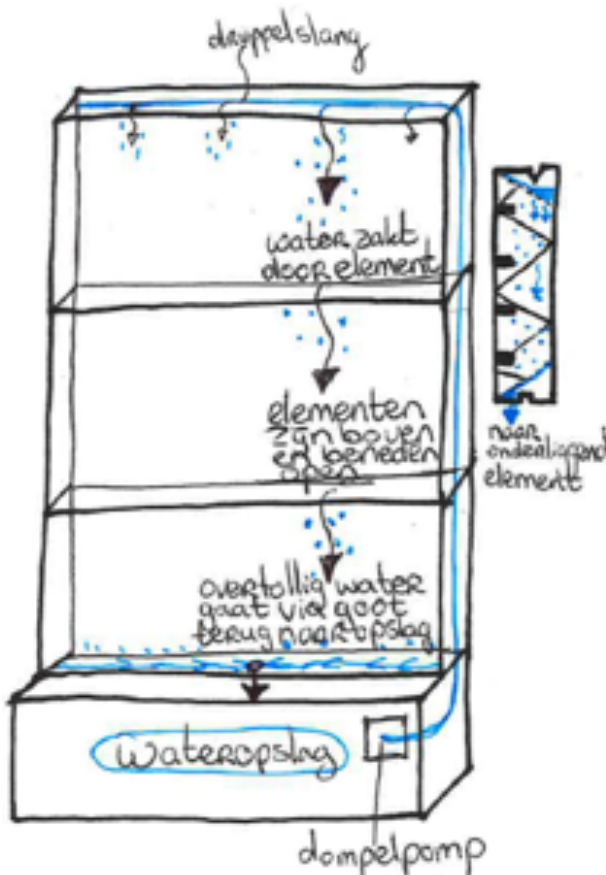 druppelslang
water zakt
door element
elementen
zijn boven
en beneden
open
naar
onderliggend
element
overtollig water
gaat via goot
terug naar opslag
wateropslag
dompelpomp